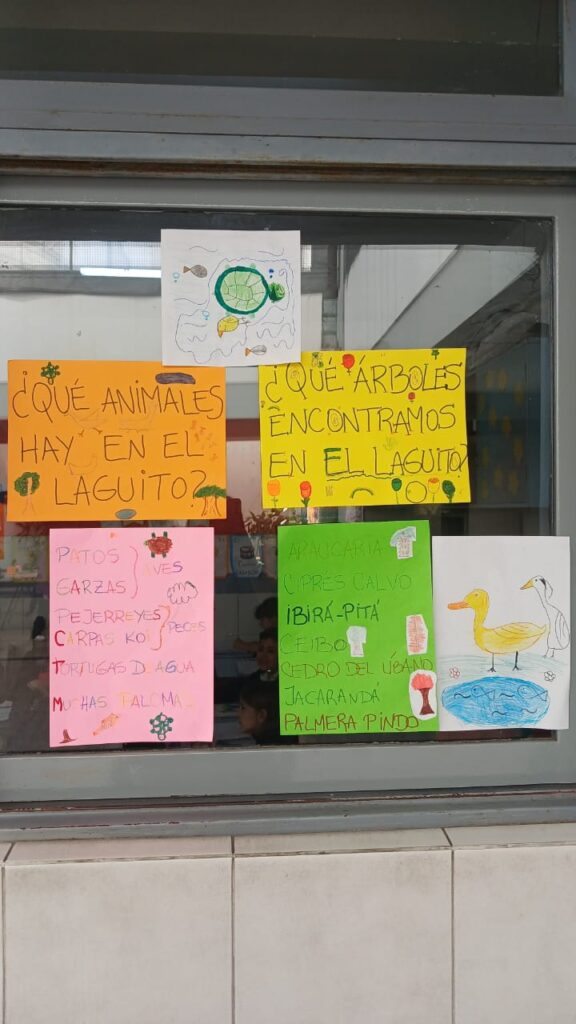 ¿QUÉ ANIMALES
HAY EN EL
LAGUITO?
¿QUÉ ÁRBOLES
ENCONTRAMOS
EN EL LAGUITO?
PATOS
GARZAS
AVES
PEJERREYES
CARPAS KOI
PECES
TORTUGAS DE AGUA
MUCHAS PALOMAS
ARAUCARIA
CIPRÉS CALVO
IBIRÁ-PITÁ
CEIBO
CEDRO DEL LÍBANO
JACARANDÁ
PALMERA PINDO